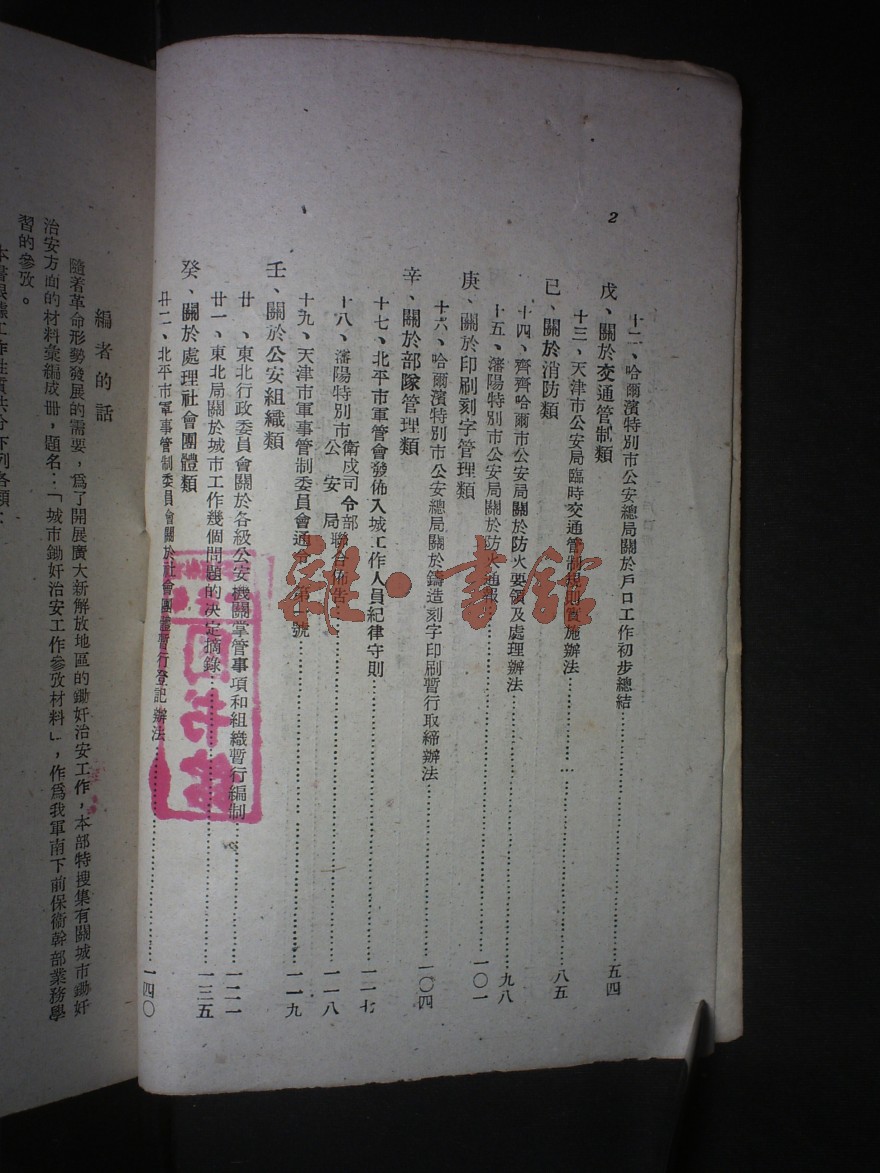 2
十二、哈爾濱特別市公安總局關於戶口工作初步總結……五四
戊、關於交通管制類
十三、天津市公安局臨時交通管制規則實施辦法……八五
已、關於消防類
十四、齊齊哈爾市公安局關於防火要領及處理辦法……九八
十五、瀋陽特別市公安局關於防火通報……一〇一
庚、關於印刷刻字管理類
十六、哈爾濱特別市公安總局關於鑄造刻字印刷暫行取締辦法……一〇四
辛、關於部隊管理類
十七、北平市軍管會發佈入城工作人員紀律守則……一一七
十八、瀋陽特別市衛戍司令部公安局聯合佈告……一一八
十九、天津市軍事管制委員會通令 第一號……一一九
壬、關於公安組織類
廿、東北行政委員會關於各級公安機關掌管事項和組織暫行編制……一二一
廿一、東北局關於城市工作幾個問題的决定摘錄……一三五
癸、關於處理社會團體類
廿二、北平市軍事管制委員會關於社會團體暫行登記辦法……一四〇
編者的話
隨着革命形勢發展的需要，爲了開展廣大新解放地區的鋤奸治安工作，本部特搜集有關城市鋤奸
治安方面的材料彙編成册，題名：「城市鋤奸治安工作參攷材料」，作爲我軍南下前保衞幹部業務學
習的參攷。
本書根據工作性質共分下列各類：
雜·書館
圖书館